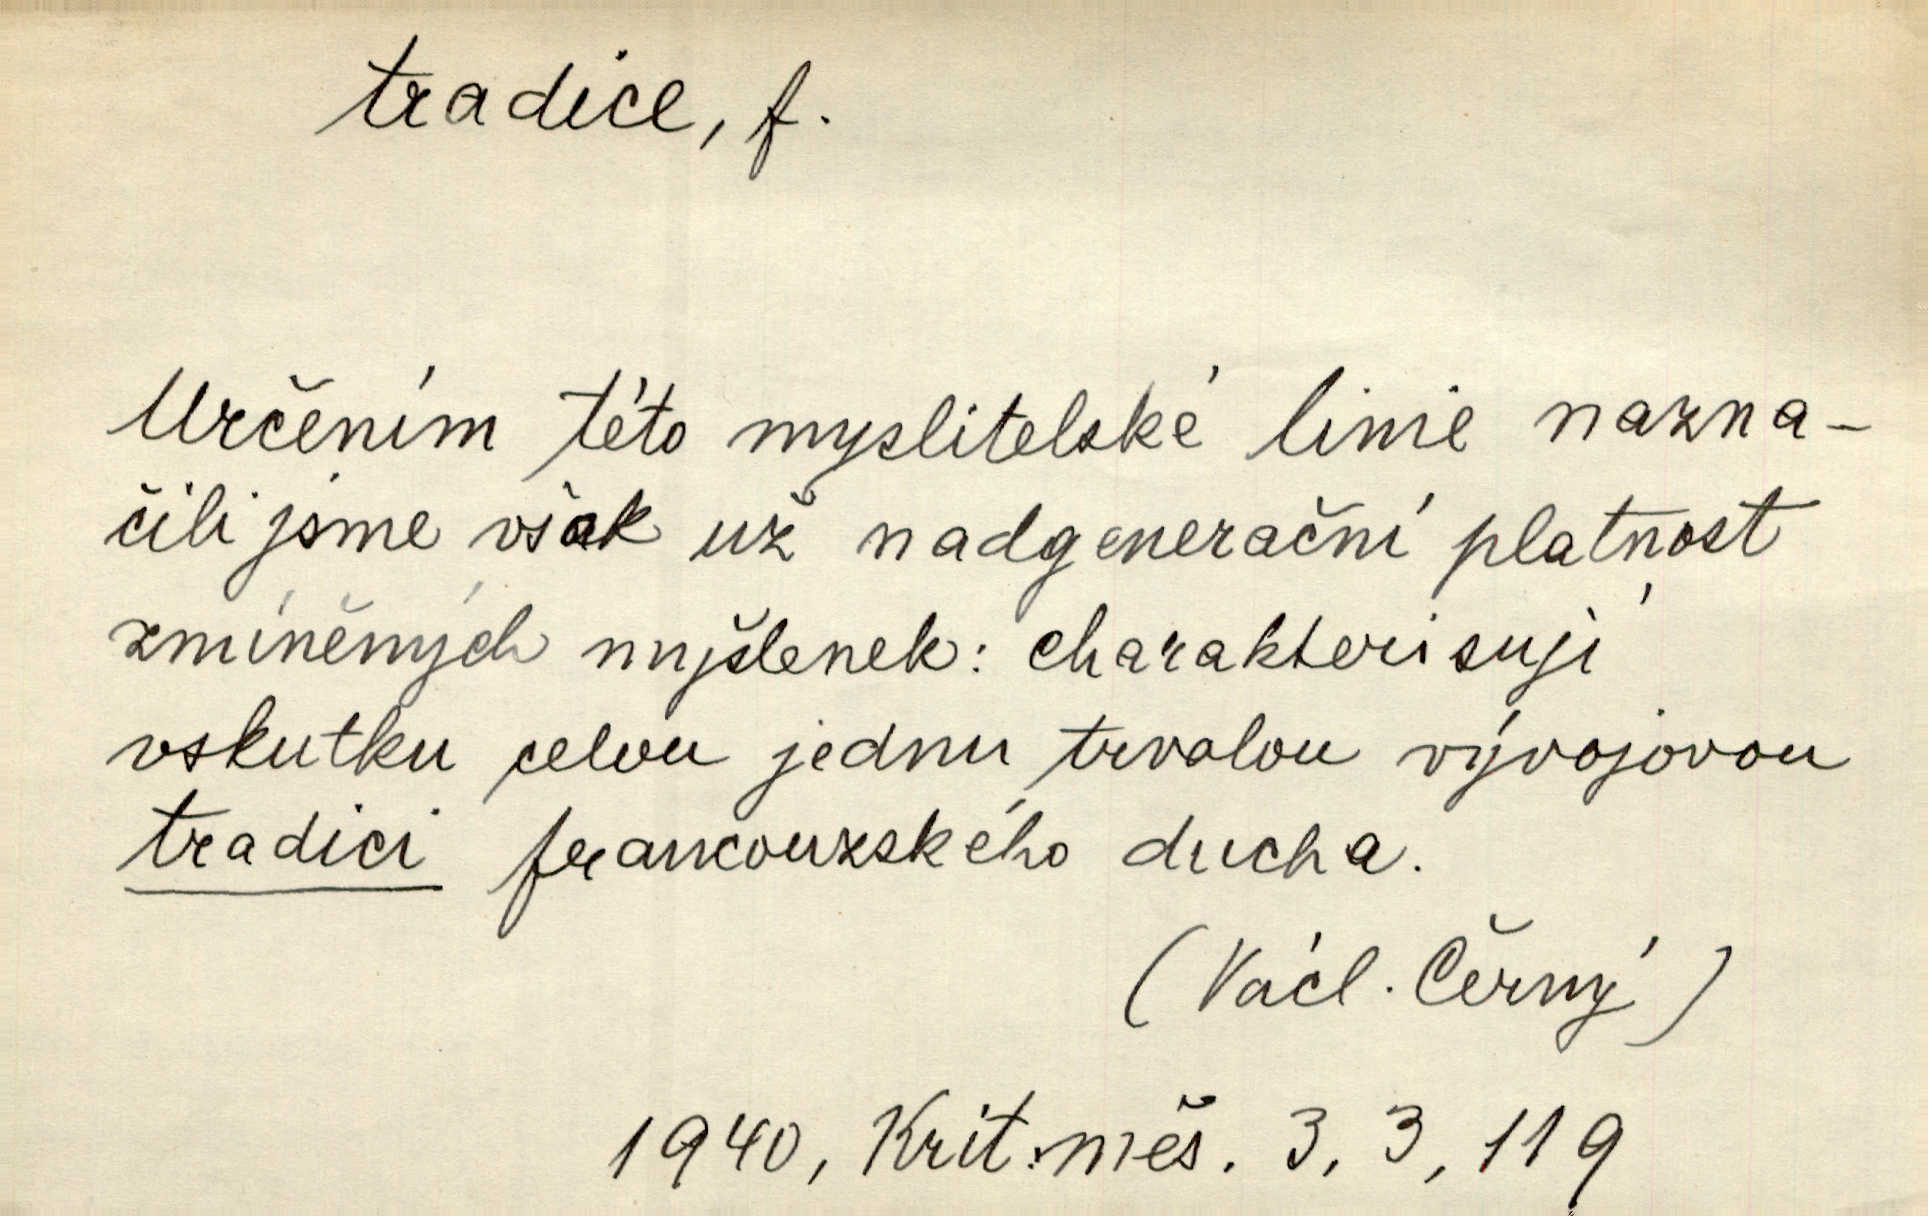 tradice, f.
Určením této myslitelské linie nazna-
čili jsme však už nadgenerační platnost
zmíněných myšlenek: charakterisují
vskutku celou jednu trvalou vývojovou
tradici francouzského ducha.
(Václ. Černý)
1940, Krit. měs. 3, 3, 119